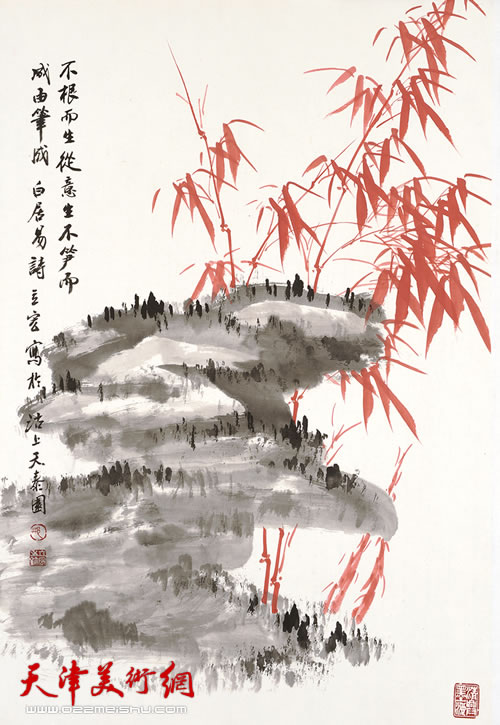 不根而生從意生不笋而
成由筆成 白居易詩 立宏寫於沽上天泰園
天津美術網
www.022meishu.com